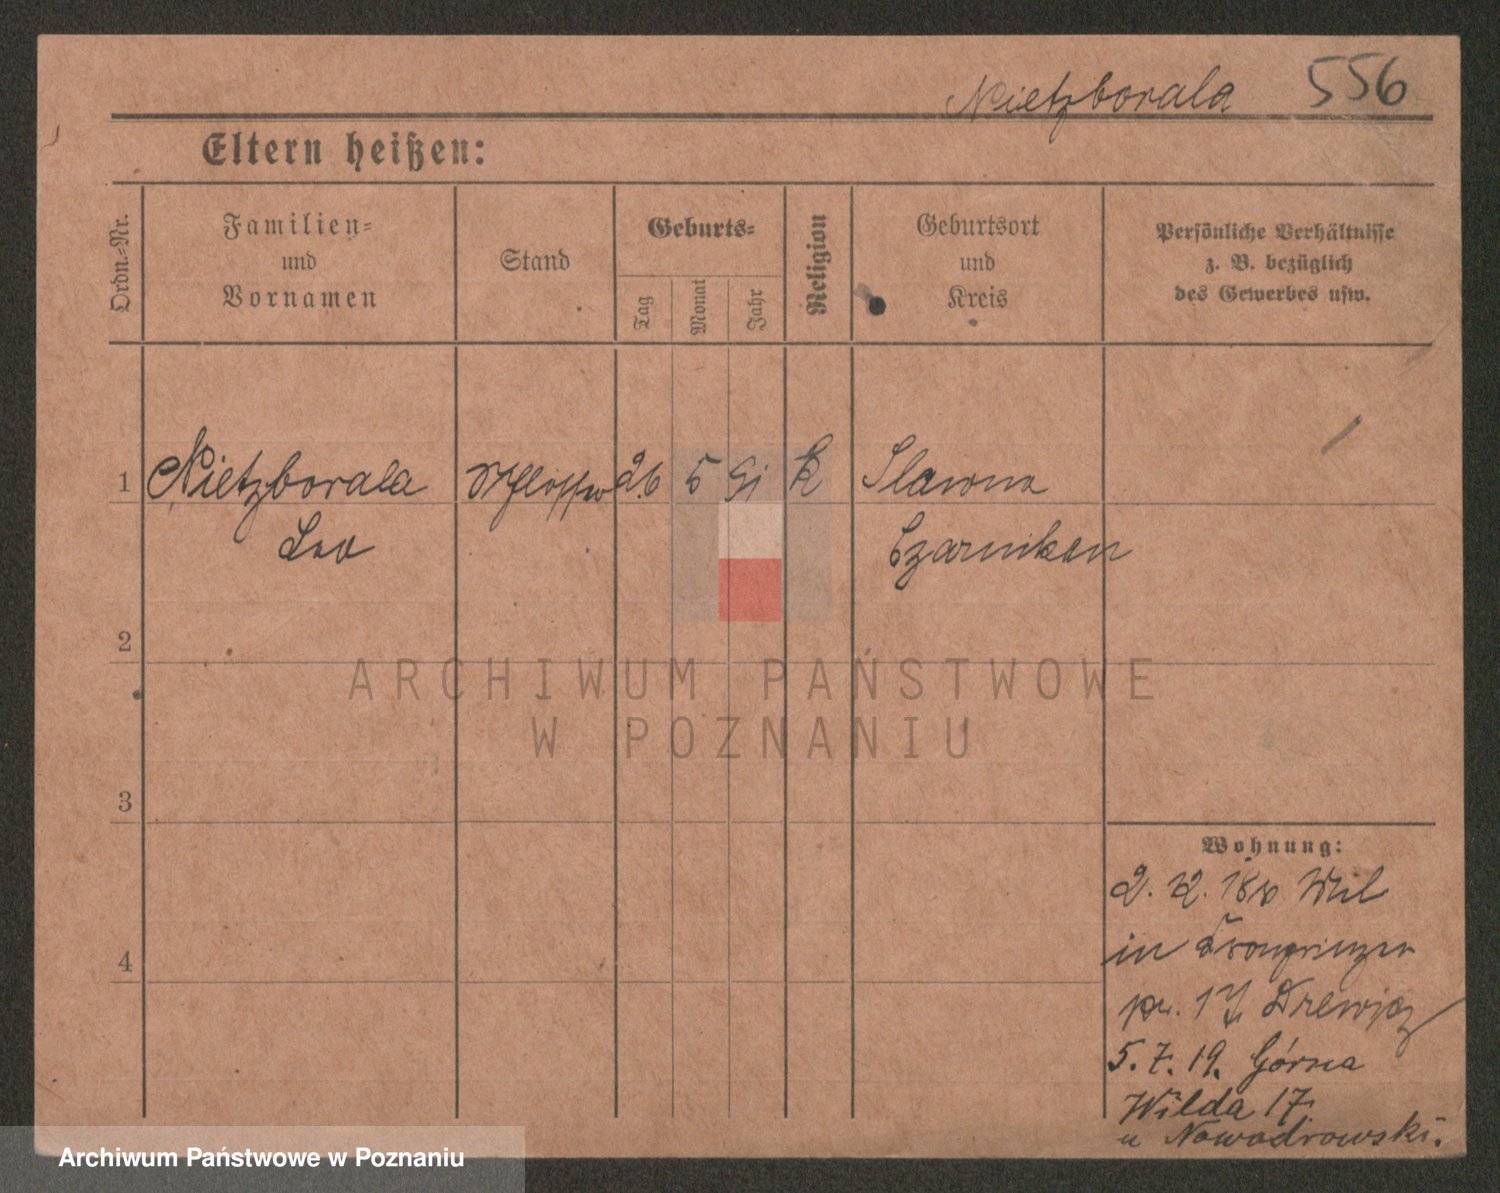 Nietzborala 556
Eltern heißen:
Ordn.-Nr.
Familien-
und
Vornamen
Stand
Geburts-
Tag
Monat
Jahr
Religion
Geburtsort
und
Kreis
Persönliche Verhältnisse
z. B. bezüglich
des Gewerbes usw.
1 Nietzborala 26 5 k Slawna
Leo Czarniken
2
ARCHIWUM PAŃSTWOWE
W POZNANIU
3
Wohnung:
2. 12. 18
in Kronprinzen
4
17
5. 7. 19. Górna
Wilda 17.
u Nowodrowski.
Archiwum Państwowe w Poznaniu